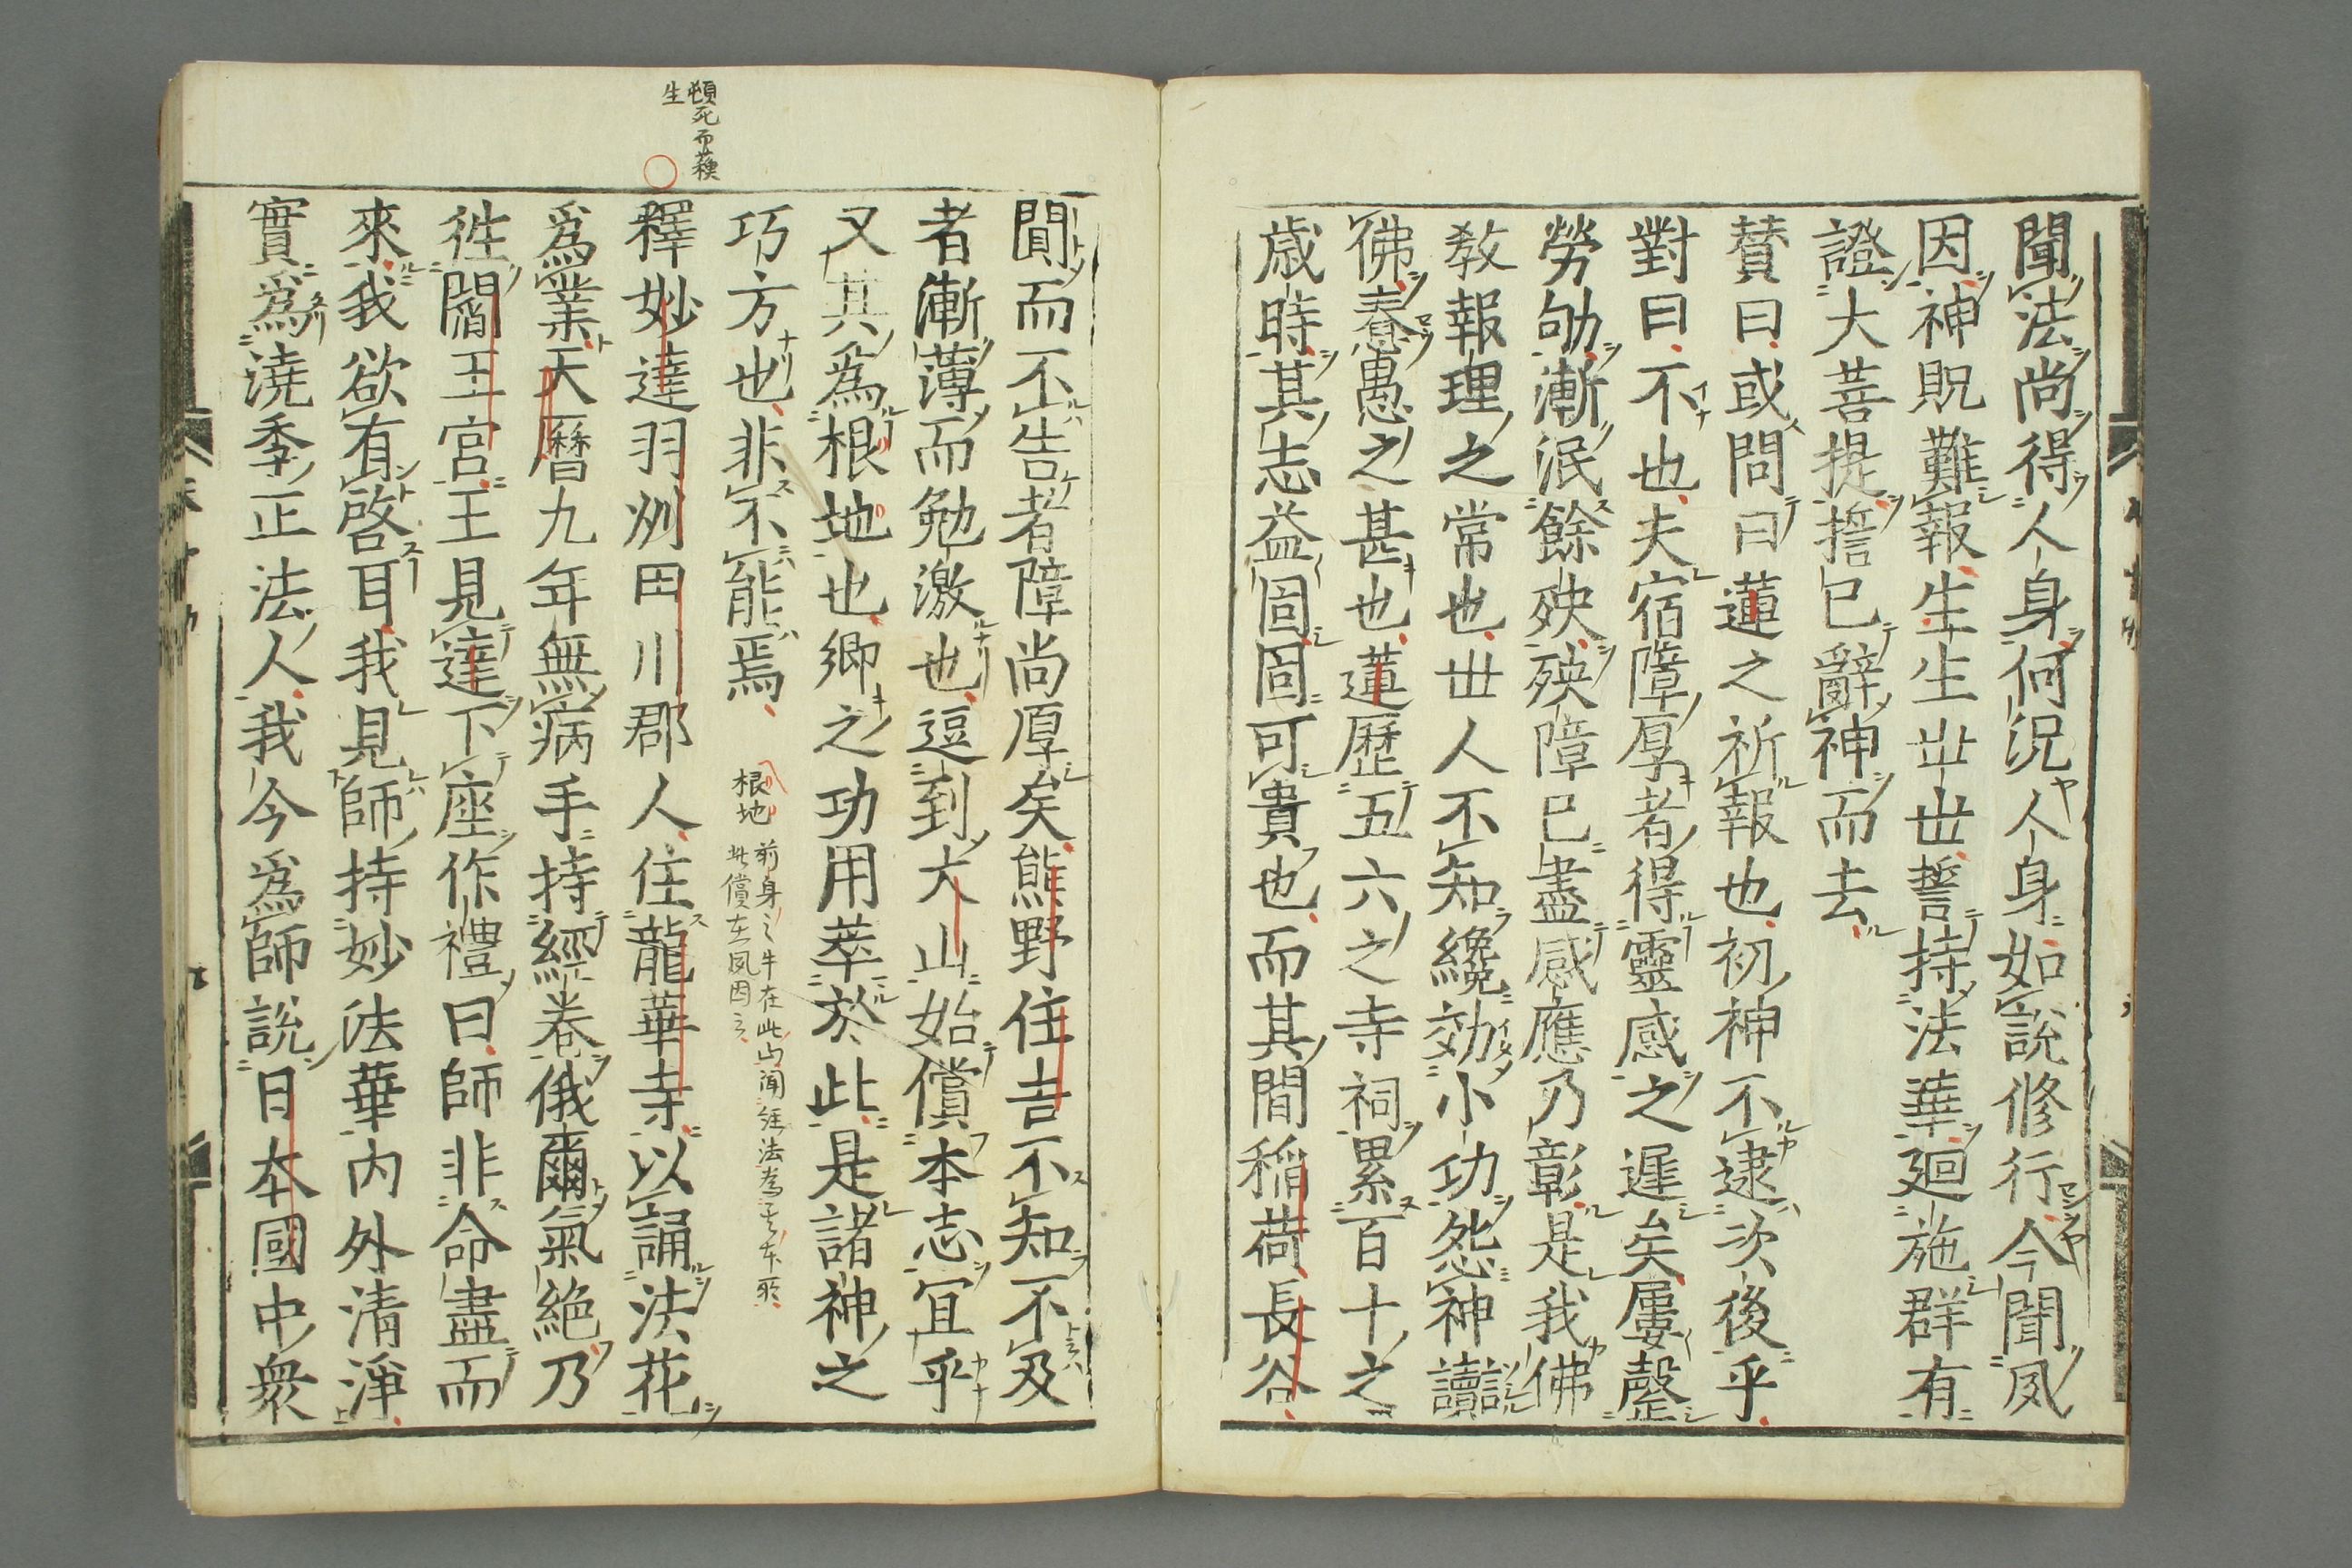 聞法尚得人身何況人身如說修行今聞夙
因神貺難報生生世世誓持法華廻施群有
證大菩提誓已辭神而去
賛曰或問曰蓮之祈報也初神不逮次後乎
對曰不也夫宿障厚者得靈感之遲矣屢罄
勞劬漸泯餘殃殃障已盡感應乃彰是我佛
敎報理之常也世人不知纔効小功怨神讟
佛惷愚之甚也蓮歷五六之寺祠累百十之
歳時其志益固固可貴也而其間稲荷長谷
聞而不告者障尚厚矣熊野住吉不知不及
者漸薄而勉激也逗到大山始償本志宜乎
又其爲根地也鄉之功用萃於此是諸神之
巧方也非不能焉
根地 前身之牛在此山聞經法爲
此償在夙因
頓死而蘓
生
釋妙達羽州田川郡人住龍華寺以誦法花
爲業天曆九年無病手持經卷俄爾氣絶乃
徃閻王宮王見達下座作禮曰師非命盡而
來我欲有啓耳我見師持妙法華內外清淨
實爲澆季正法人我今爲師說日本國中衆